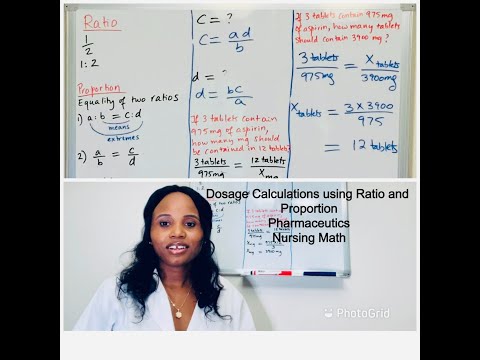 Ratio
1
2
1:2
Proportion
Equality of two ratios
1) a:b = c:d
means
extremes
2) a = c
b d
C = ?
C = ad
b
d = ?
d = bC
a
If 3 tablets contain
975mg of aspirin,
how many mg should
be contained in 12 tablets?
3 tablets = 12 tablets
975mg X mg
If 3 tablets contain 975mg
of aspirin, how many tablets
should contain 3900 mg?
3 tablets = X tablets
975mg 3900mg
X tablets = 3 x 3900
975
= 12 tablets
Dosage Calculations using Ratio and
Proportion
Pharmaceutics
Nursing Math
PhotoGrid